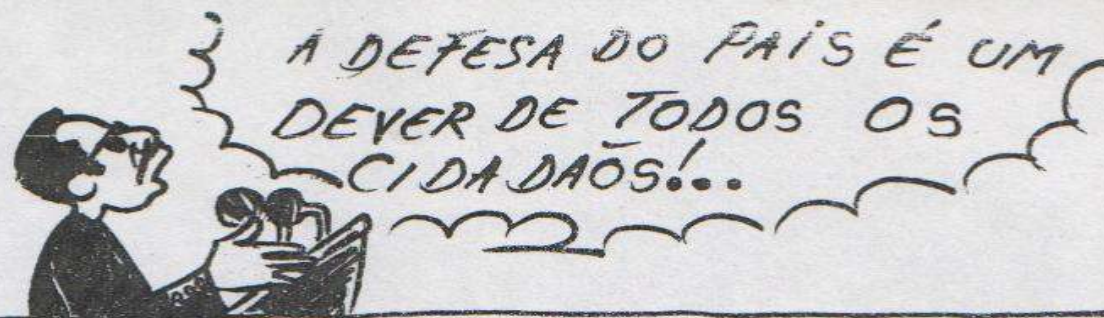 A DEFESA DO PAÍS É UM
DEVER DE TODOS OS
CIDADAÕS!...